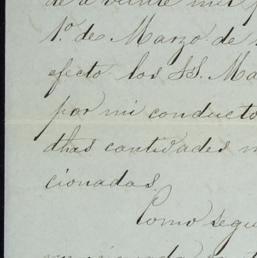 de a veinte mil p
1º de Marzo de
efecto los SS. Ma
por mi conducto
dhas cantidades m
cionadas.
Como segu